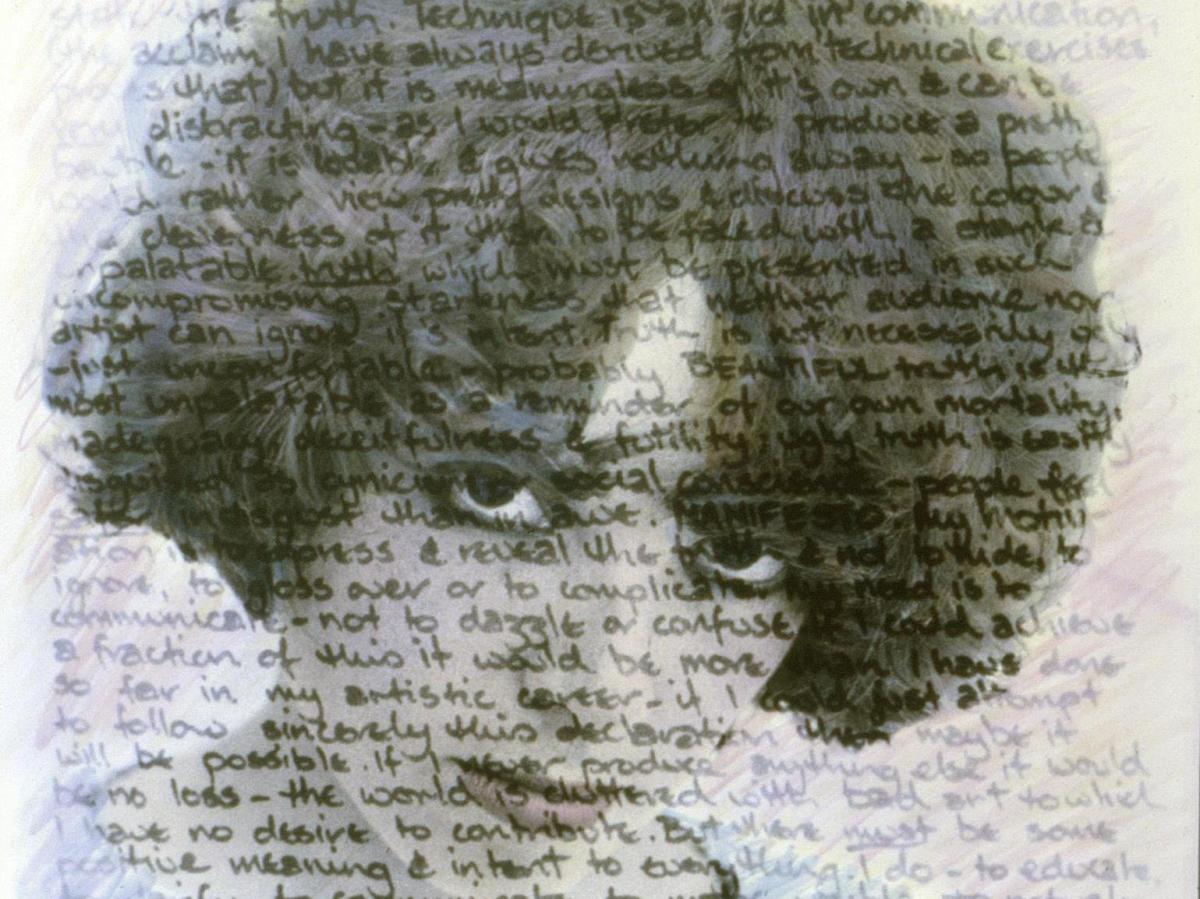 the truth. Technique is an aid in communication,
(the acclaim I have always derived from technical exercises
s that) but it is meaningless on it's own & can be
distracting - as I would prefer to produce a pretty
- it is & gives nothing away - so people
rather view pretty designs & discuss the colour &
of it than to be faced with a
palatable truth which must be presented in such
uncompromising starkness that neither audience nor
artist can ignore it's intent. Truth is not necessarily
- just uncomfortable - probably BEAUTIFUL truth is the
most unpalatable as a reminder of our own mortality,
inadequacy, deceitfulness & futility, ugly truth is easily
disguised as cynicism or social conscience - people
disgust than in awe. MANIFESTO My motiv-
ation is to express & reveal the truth & not to hide, to
ignore, to gloss over or to complicate. My need is to
communicate - not to dazzle or confuse. If I could achieve
a fraction of this it would be more than I have done
so far in my artistic career - if I could just attempt
to follow sincerely this declaration then maybe it
will be possible. If I never produce anything else it would
be no loss - the world is cluttered with bad art to which
I have no desire to contribute. But there must be some
positive meaning & intent to everything I do - to educate,
to communicate, to